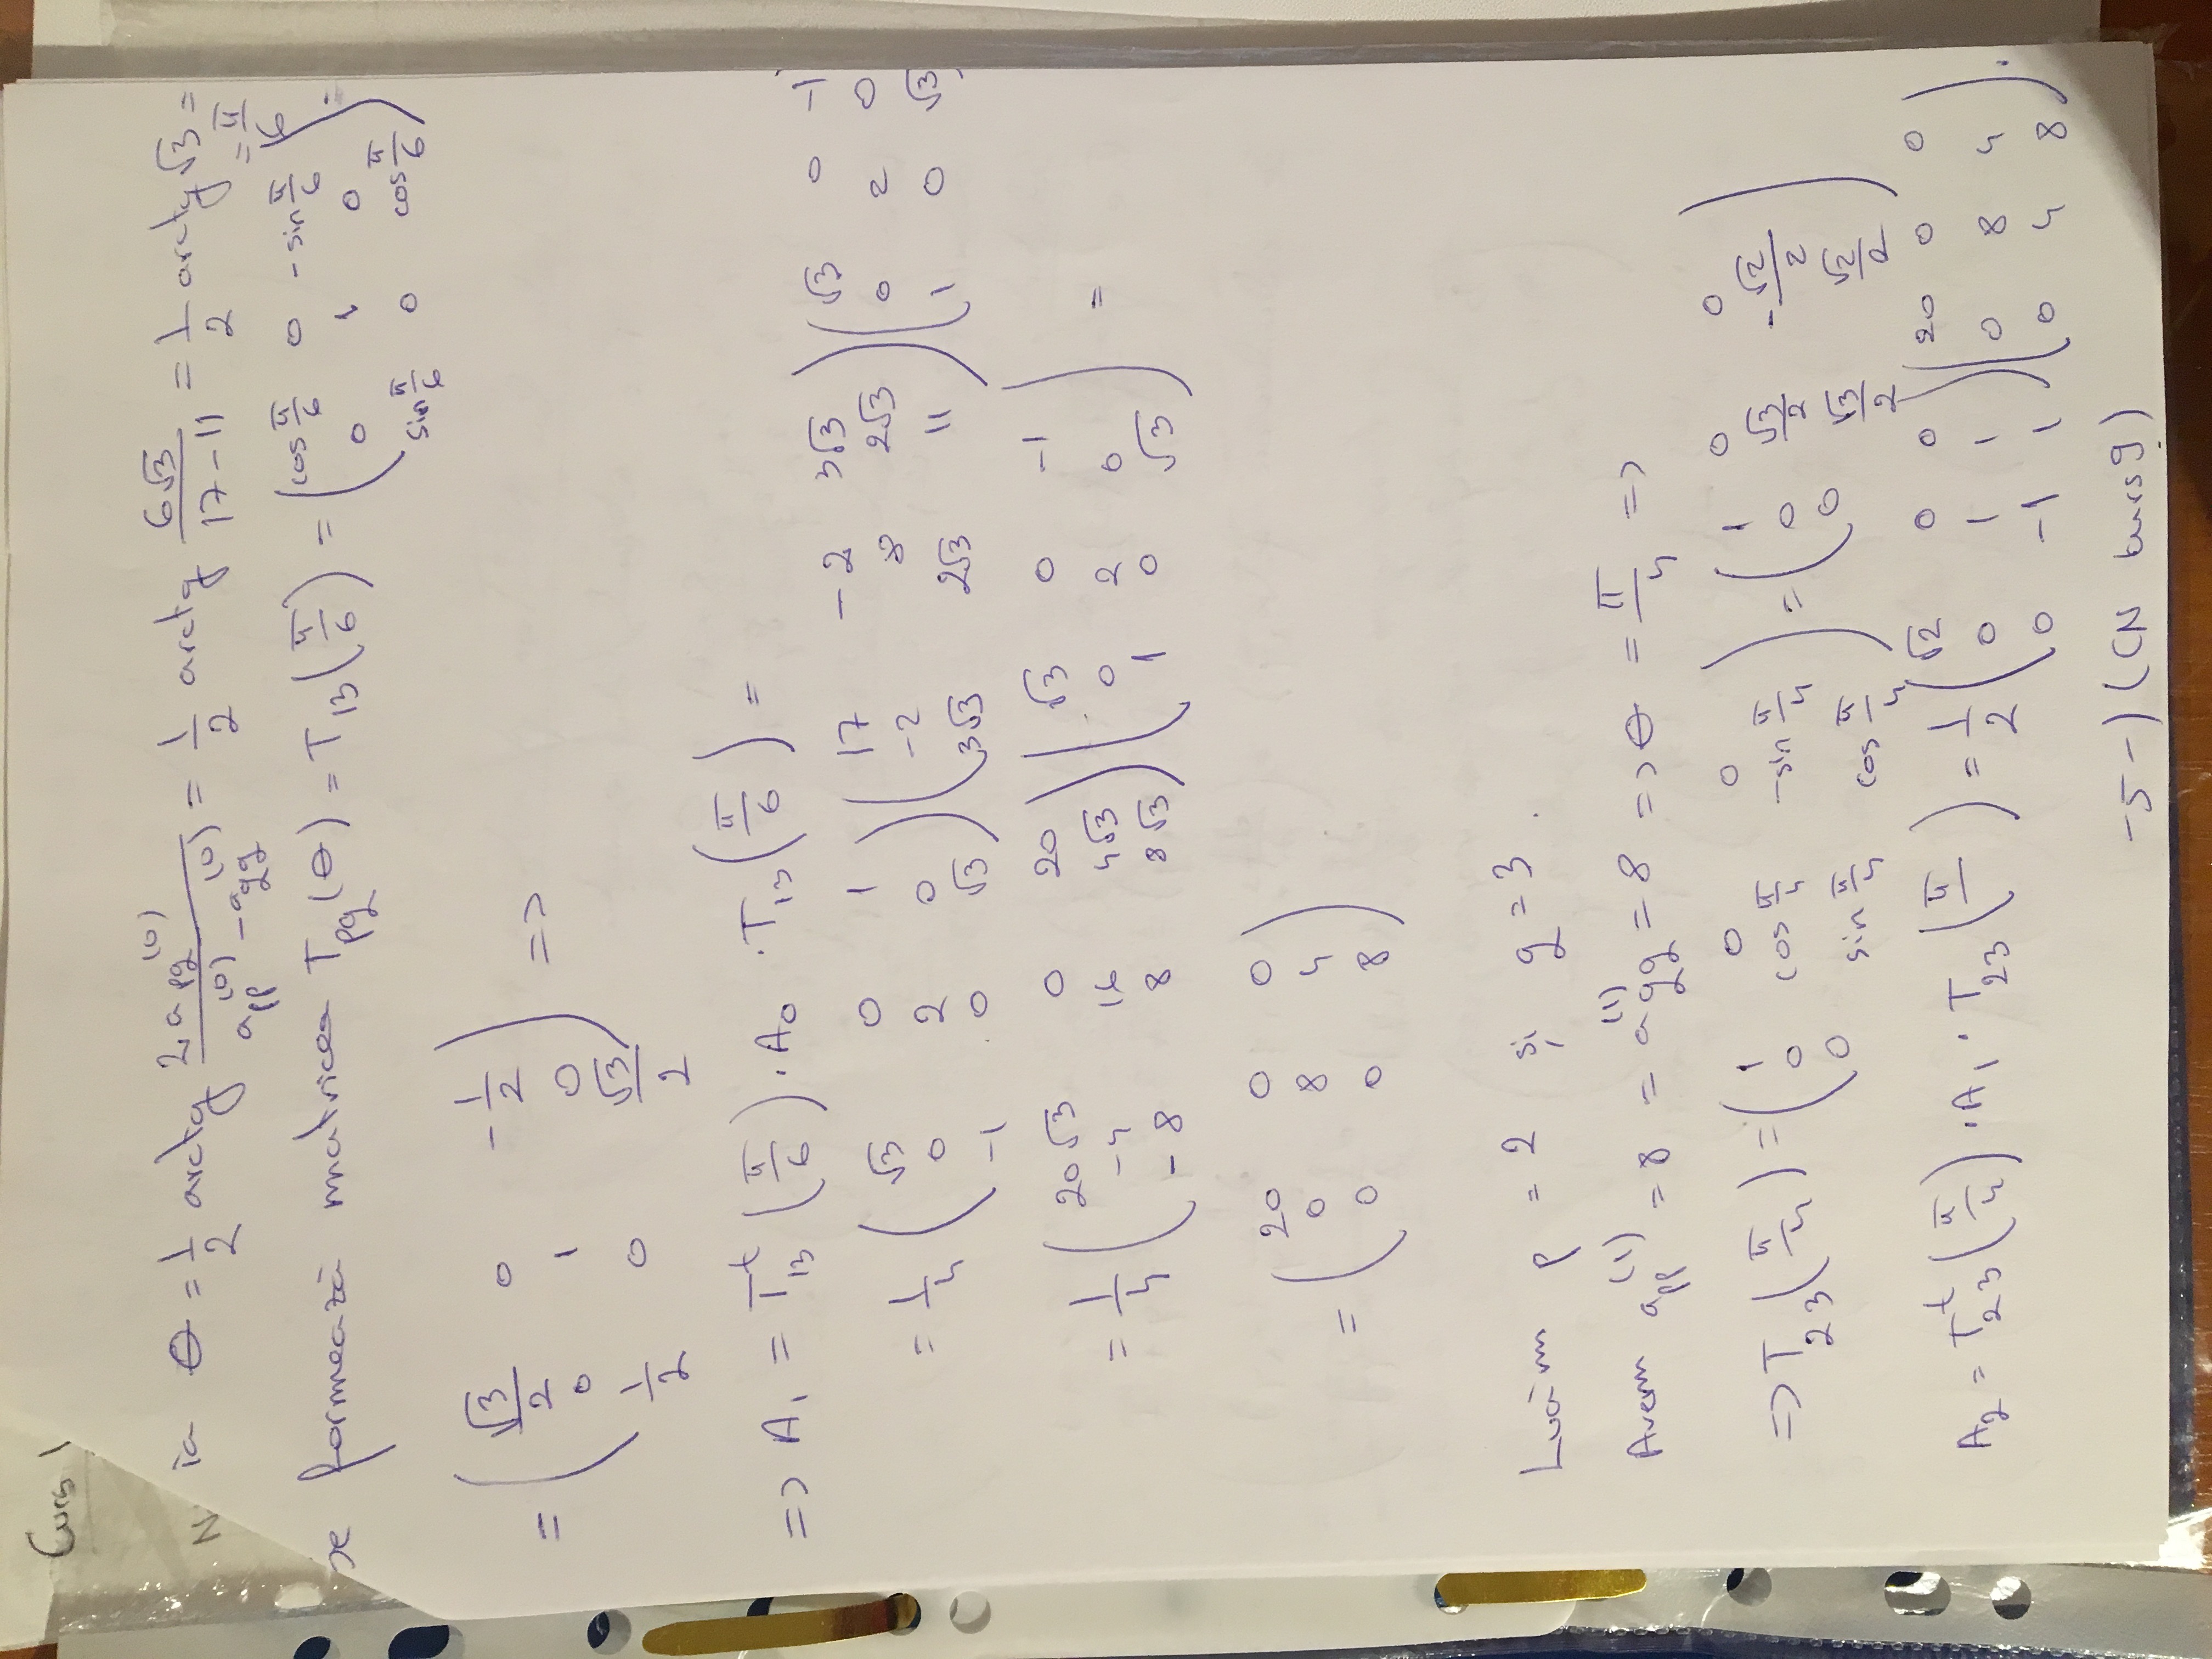 Curs 1
N
ia θ = 1/2 arctg 2a_pq^(0) / (a_pp^(0) - a_qq^(0)) = 1/2 arctg 6√3/(17-11) = 1/2 arctg √3 =
= π/6
se formează matricea T_pq(θ) = T_13(π/6) = ( cos π/6 0 -sin π/6
0 1 0
sin π/6 0 cos π/6 ) =
= ( √3/2 0 -1/2
0 1 0
1/2 0 √3/2 ) =>
=> A_1 = T^t_13(π/6) · A_0 · T_13(π/6) =
= 1/4 ( √3 0 1 )( 17 -2 3√3 )( √3 0 -1
0 2 0 -2 8 2√3 0 2 0
-1 0 √3 )( 3√3 2√3 11 )( 1 0 √3
= 1/4 ( 20√3 0 20 )( √3 0 -1 ) =
-4 16 4√3 0 2 0
-8 8 8√3 )( 1 0 √3 )
= ( 20 0 0
0 8 4
0 0 8 )
Luăm p = 2 și q = 3
Avem a_pp^(1) = 8 = a_qq^(1) = 8 => θ = π/4 =>
=> T_23(π/4) = ( 1 0 0
0 cos π/4 -sin π/4
0 sin π/4 cos π/4 ) = ( 1 0 0
0 √2/2 -√2/2
0 √2/2 √2/2 )
A_2 = T^t_23(π/4) · A_1 · T_23(π/ ) = 1/2 ( √2 0 0 )( 20 0 0
0 1 1 0 8 4
0 -1 1 )( 0 4 8 ) .
-5-) (CN curs 9)